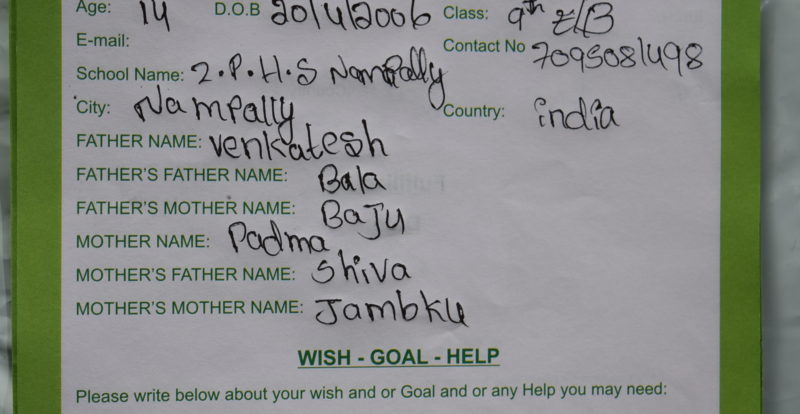 Age: 14 D.O.B 20/4/2006 Class: 9th E/B
E-mail: Contact No 7095081498
School Name: Z.P.H.S Nampally
City: Nampally Country: india
FATHER NAME: venkatesh
FATHER'S FATHER NAME: Bala
FATHER'S MOTHER NAME: BaJu
MOTHER NAME: Padma
MOTHER'S FATHER NAME: Shiva
MOTHER'S MOTHER NAME: Jambku
WISH - GOAL - HELP
Please write below about your wish and or Goal and or any Help you may need: